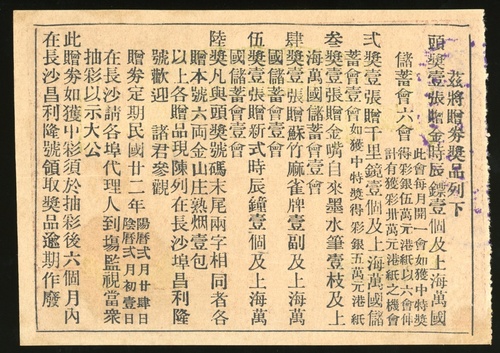 茲將贈券獎品列下
頭獎壹張贈金時辰鏢壹個及上海萬國
儲蓄會六會
此會每月開一會如獲中特獎
得彩銀伍萬元港紙以六會併
計有獲彩卅萬元港紙之機會
弍獎壹張贈千里鏡壹個及上海萬國儲
蓄會壹會如獲中特獎得彩銀五萬元港紙
叁獎壹張贈金嘴自來墨水筆壹枝及上
海萬國儲蓄會壹會
肆獎壹張贈蘇竹麻雀牌壹副及上海萬
國儲蓄會壹會
伍獎壹張贈新式時辰鐘壹個及上海萬
國儲蓄會壹會
陸獎凡與頭獎號碼末尾兩字相同者各
贈本號六両金山庄熟烟壹包
以上各贈品現陳列在長沙埠昌利隆
號歡迎 諸君參觀
贈券定期民國廿二年
陽曆弍月廿肆日
陰曆弍月初壹日
在長沙請各埠代理人到塲監視當衆
抽彩以示大公
此贈券如獲中彩須於抽彩後六個月內
在長沙昌利隆號領取獎品逾期作廢